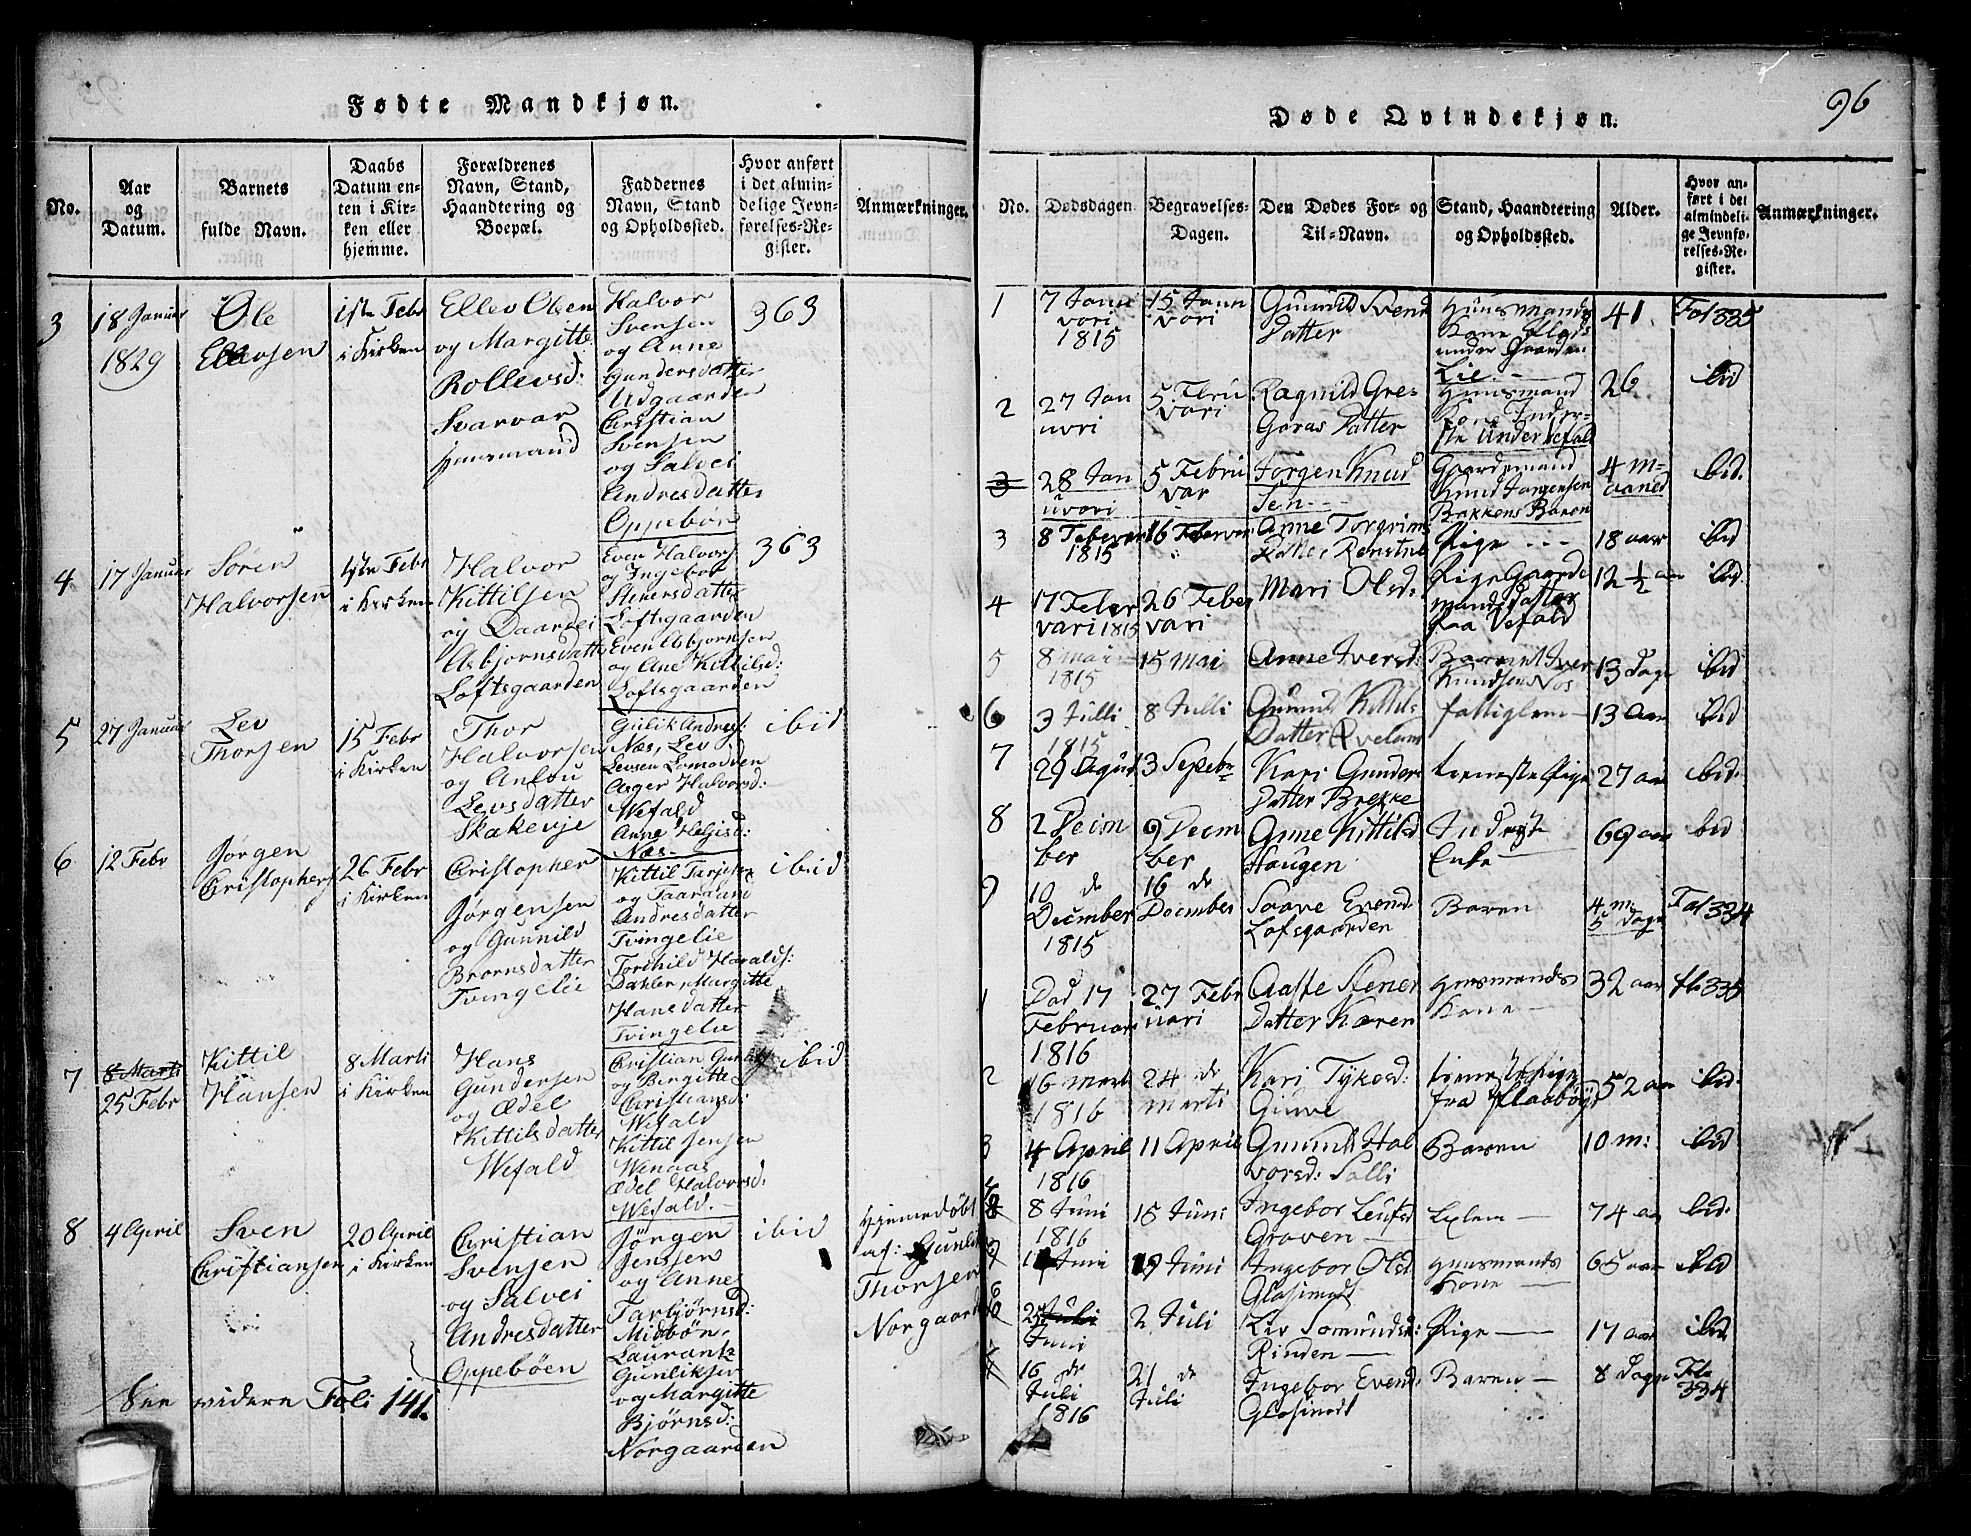 Fødte Mandkjøn.
No.
Aar
og
Datum.
Barnets
fulde Navn.
Daabs
Datum en-
ten i Kir-
ken eller
hjemme.
Forældrenes
Navn, Stand,
Haandtering og
Boepæl.
Faddernes
Navn, Stand
og Opholdssted.
Hvor anført
i det almin-
delige Jevn-
førelses-Re-
gister.
Anmærkninger.
3
18 Januar
1829
Ole
Ellevsen
1ste Febr
i Kirken
Ellev Olsen
og Margitte
Rollevsd:
Svarvar
Huusmand
Halvor
Svensen
og Anne
Gundersdatter
Udgaarden
Christian
Svensen
og Salvei
Andresdatter
Oppebøn
363
4
17 Januar
Søren
Halvorsen
1ste Febr
i Kirken
Halvor
Kittilsen
og Daardei
Asbjornsdatter
Loftsgaarden
Even Halvors
og Ingebor
Stenersdatter
Loftsgaarden
Even Asbjornsen
og Ane Kittilsd:
Loftsgaarden
363
5
27 Januar
Lev
Thorsen
15 Febr
i Kirken
Thor
Halvorsen
og Anlou
Levsdatter
Skakenje
Gulik Andres:
Næs, Lev
Levsen
Asger Halvorsd:
Wefald
Anne Helgisd:
Næs
ibid
6
12 Febr
Jørgen
Christophers
26 Febr
i Kirken
Christopher
Jørgensen
og Gunnild
Brornsdatter
Tvingelie
Kittil
og Taaraand
Andresdatter
Tvingelie
Torchild Haralds:
Dahler, Margitte
Hansdatter
Tvingelie
ibid
7
8 Marti
25 Febr
Kittil
Hansen
8 Marti
i Kirken
Hans
Gundersen
og Ædel
Kittilsdatter
Wefald
Christian
og Birgitte
Christiansd:
Wefald
Kittil Jensen
Wenaas
Ædel Halvorsd:
Wefald.
ibid
8
4 April
Sven
Christiansen
20 April
i Kirken
Christian
Svensen
og Salvei
Andresdatter
Oppebøen
Jørgen
Jenssen
og Anne
Tarbjørnsd:
Midbøn,
Laurantz
Gunliksen
og Margitte
Bjørnsd:
Norgaarden
ibid
Hjemedøbt
af: Gunlik
Thorsen
Norgaard
See widere Foli 141.
Døde Qvindekjøn.
96
No.
Dødsdagen
Begravelses-
Dagen.
Den Dødes For- og
Til-Navn.
Stand, Haandtering
og Opholdssted.
Alder.
Hvor an-
ført i det
almindeli-
ge Jevnfø-
relses-Re-
gister.
Anmærkninger.
1
7 Janu
vari
1815
15 Janu
vari
Gunild Svens
Datter
Huusmands
Kone Plads
under Gaarden
Lie
41
Fol 335
2
27 Jan
uvri
5 Febru
vari
Ragnild Gres
Goras Datter
Huusmand
Kone Inder-
ste Under Vefald
26
ibid
3
28 Jan
uvari
5 Febru
var
Jorgen Knud
Sen
Gaardemand
Knud Jorgensen
Bakkens Baren
4 m-
aaned
ibid.
3
8 Feberar
1815
16 Feberver
Anne Torgrims
Datter
Pige
18 aar
ibid
4
17 Feber
vari 1815
26 Feber
vari
Mari Olsd:
Pige Gaarde
mandsdatter
paa Vefald
12 ½ aar
ibid.
5
8 Mai
1815
15 Mai
Anne Iversd:
Barnet Iver
Knudsen Nœs
13 Dage
ibid
6
3 Julli
1815
8 Julli
Gunild Kittils
Datter Qvelum
fattiglem
13 Aar
ibid
7
29 Agust
3 Sepebr
Kari Gunders
Datter Brekke
tieneste Pige
27 aar
ibid.
8
2 Decim
ber
9 Decm
ber
Anne Kittilsd
Haugen
Enke
69 aar
ibid
9
10 de
Decmber
1815
16 de
Docmber
Saave Evensd
Lofsgaarden
Baren
4 m
5 dage
Fol 334
1
Død 17
Februari
1816
27 Febr
uari
Aaste Stener
Datter Kæren
Huusmands
Kone
32 aar
fo 335
2
16 marti
1816
24 de
marti
Kari Tykesd:
Giuve
tieneste Pige
fra
52 aar
ibid.
3
4 April
1816
11 April
Gunild Hal
vorsd: Solli
Baren
10 m:
ibid
4
8 Juni
1816
15 Juni
Ingebor Leufsd
Groven
Lelem
74 aar
ibid.
Juni
19 Juni
Ingebor Olsd
Glasimodt
Huusmands
Kone
65 aar
ibid
6
25 Juli
Juni
2 Juli
Liv Somundsd:
Rinden
Pige
17 aar
ibid
16 de
Juli
1816
21 de
Juli
Ingebor Evend:
Glosimodt
Baren
8 Dage
Fol
334